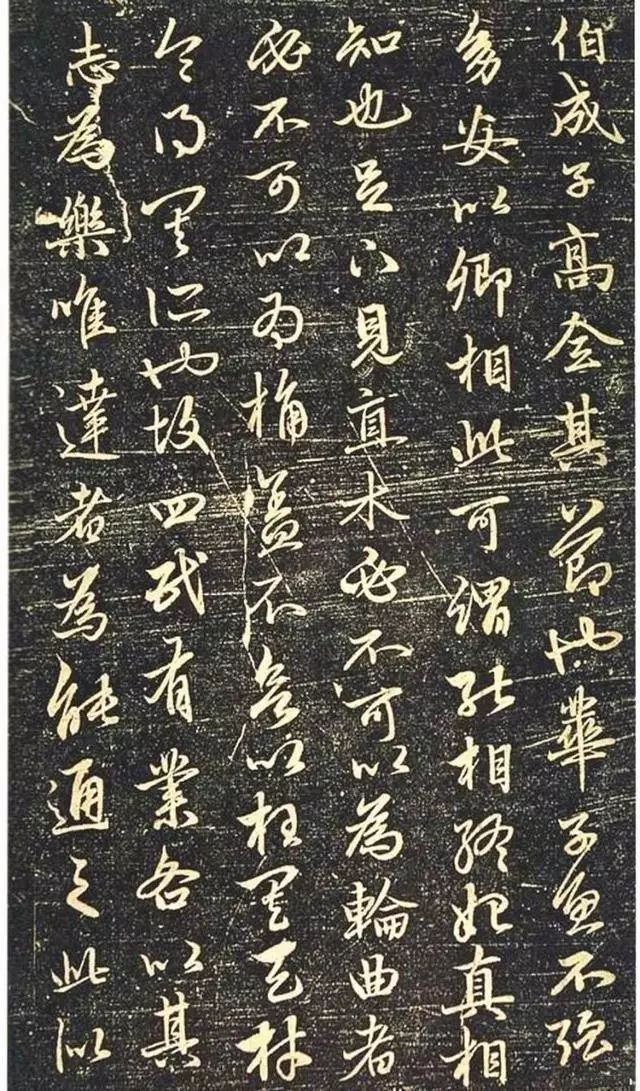 伯成子高全其節也華子魚不強
幼安以卿相此可謂能相終始真相
知也足下見直木必不可以為輪曲者
必不可以為桷蓋不欲以枉其天材
令得其所也故四民有業各以其
志為樂唯達者為能通之此似